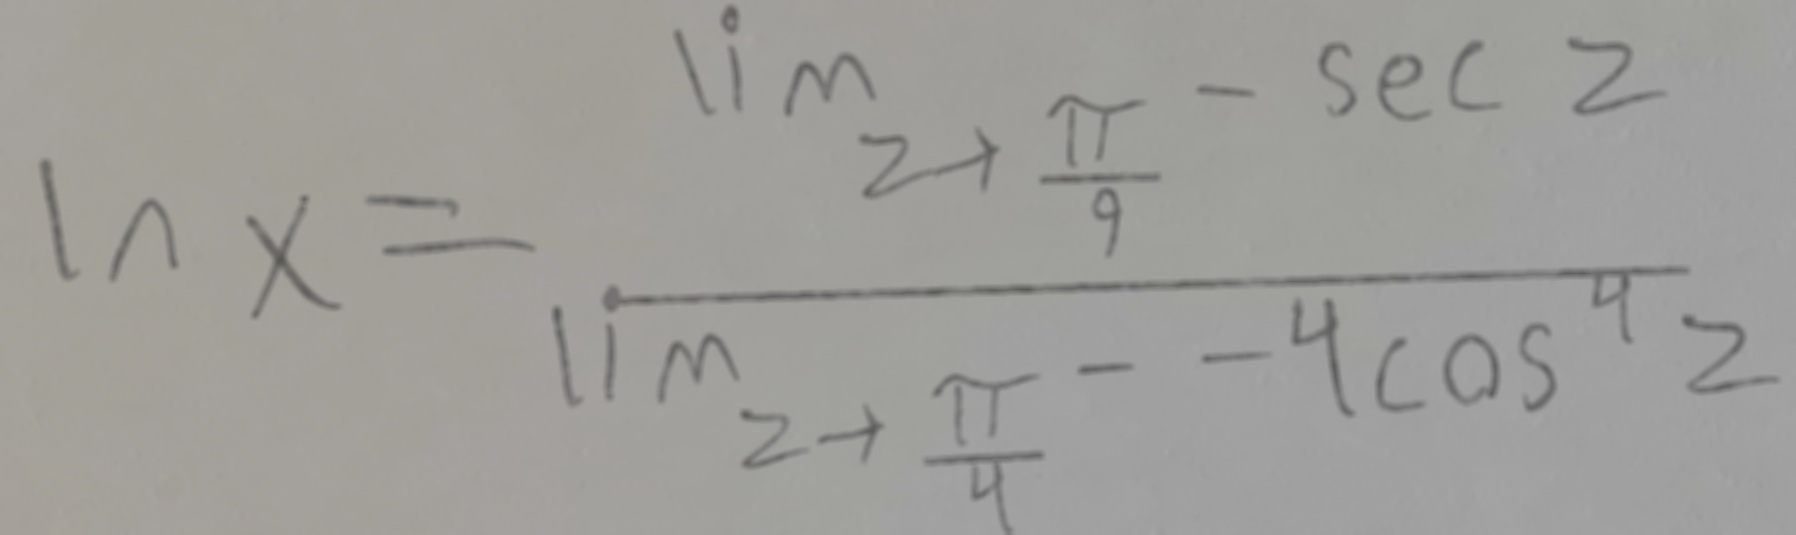 ln x = \frac{\lim_{z \to \frac{\pi}{9}^-} \sec z}{\lim_{z \to \frac{\pi}{4}^-} -4\cos^4 z}